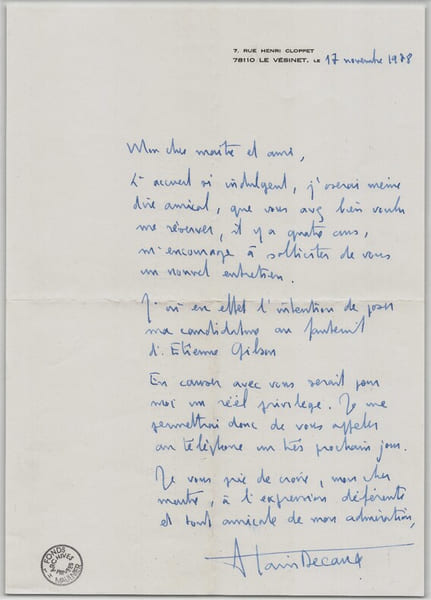 7, RUE HENRI CLOPPET
78110 LE VÉSINET, LE 17 novembre 1978
Mon cher maître et ami,
L'accueil si indulgent, j'oserai même
dire amical, que vous avez bien voulu
me réserver, il y a quatre ans,
m'encourage à solliciter de vous
un nouvel entretien.
J'ai en effet l'intention de poser
ma candidature au fauteuil
d'Etienne Gilson
En causer avec vous serait pour
moi un réel privilège. Je me
permettrai donc de vous appeler
au téléphone un très prochain jour.
Je vous prie de croire, mon cher
maître, à l'expression déférente
et tout amicale de mon admiration,
Alain Decaux
FONDS
ARCHIVES
MAULNIER